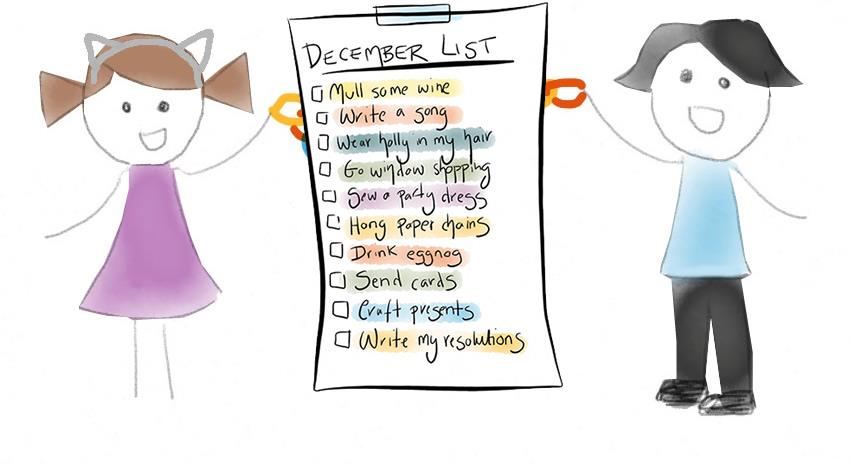 DECEMBER LIST
Mull some wine
Write a song
Wear holly in my hair
Go window shopping
Sew a party dress
Hang paper chains
Drink eggnog
Send cards
Craft presents
Write my resolutions